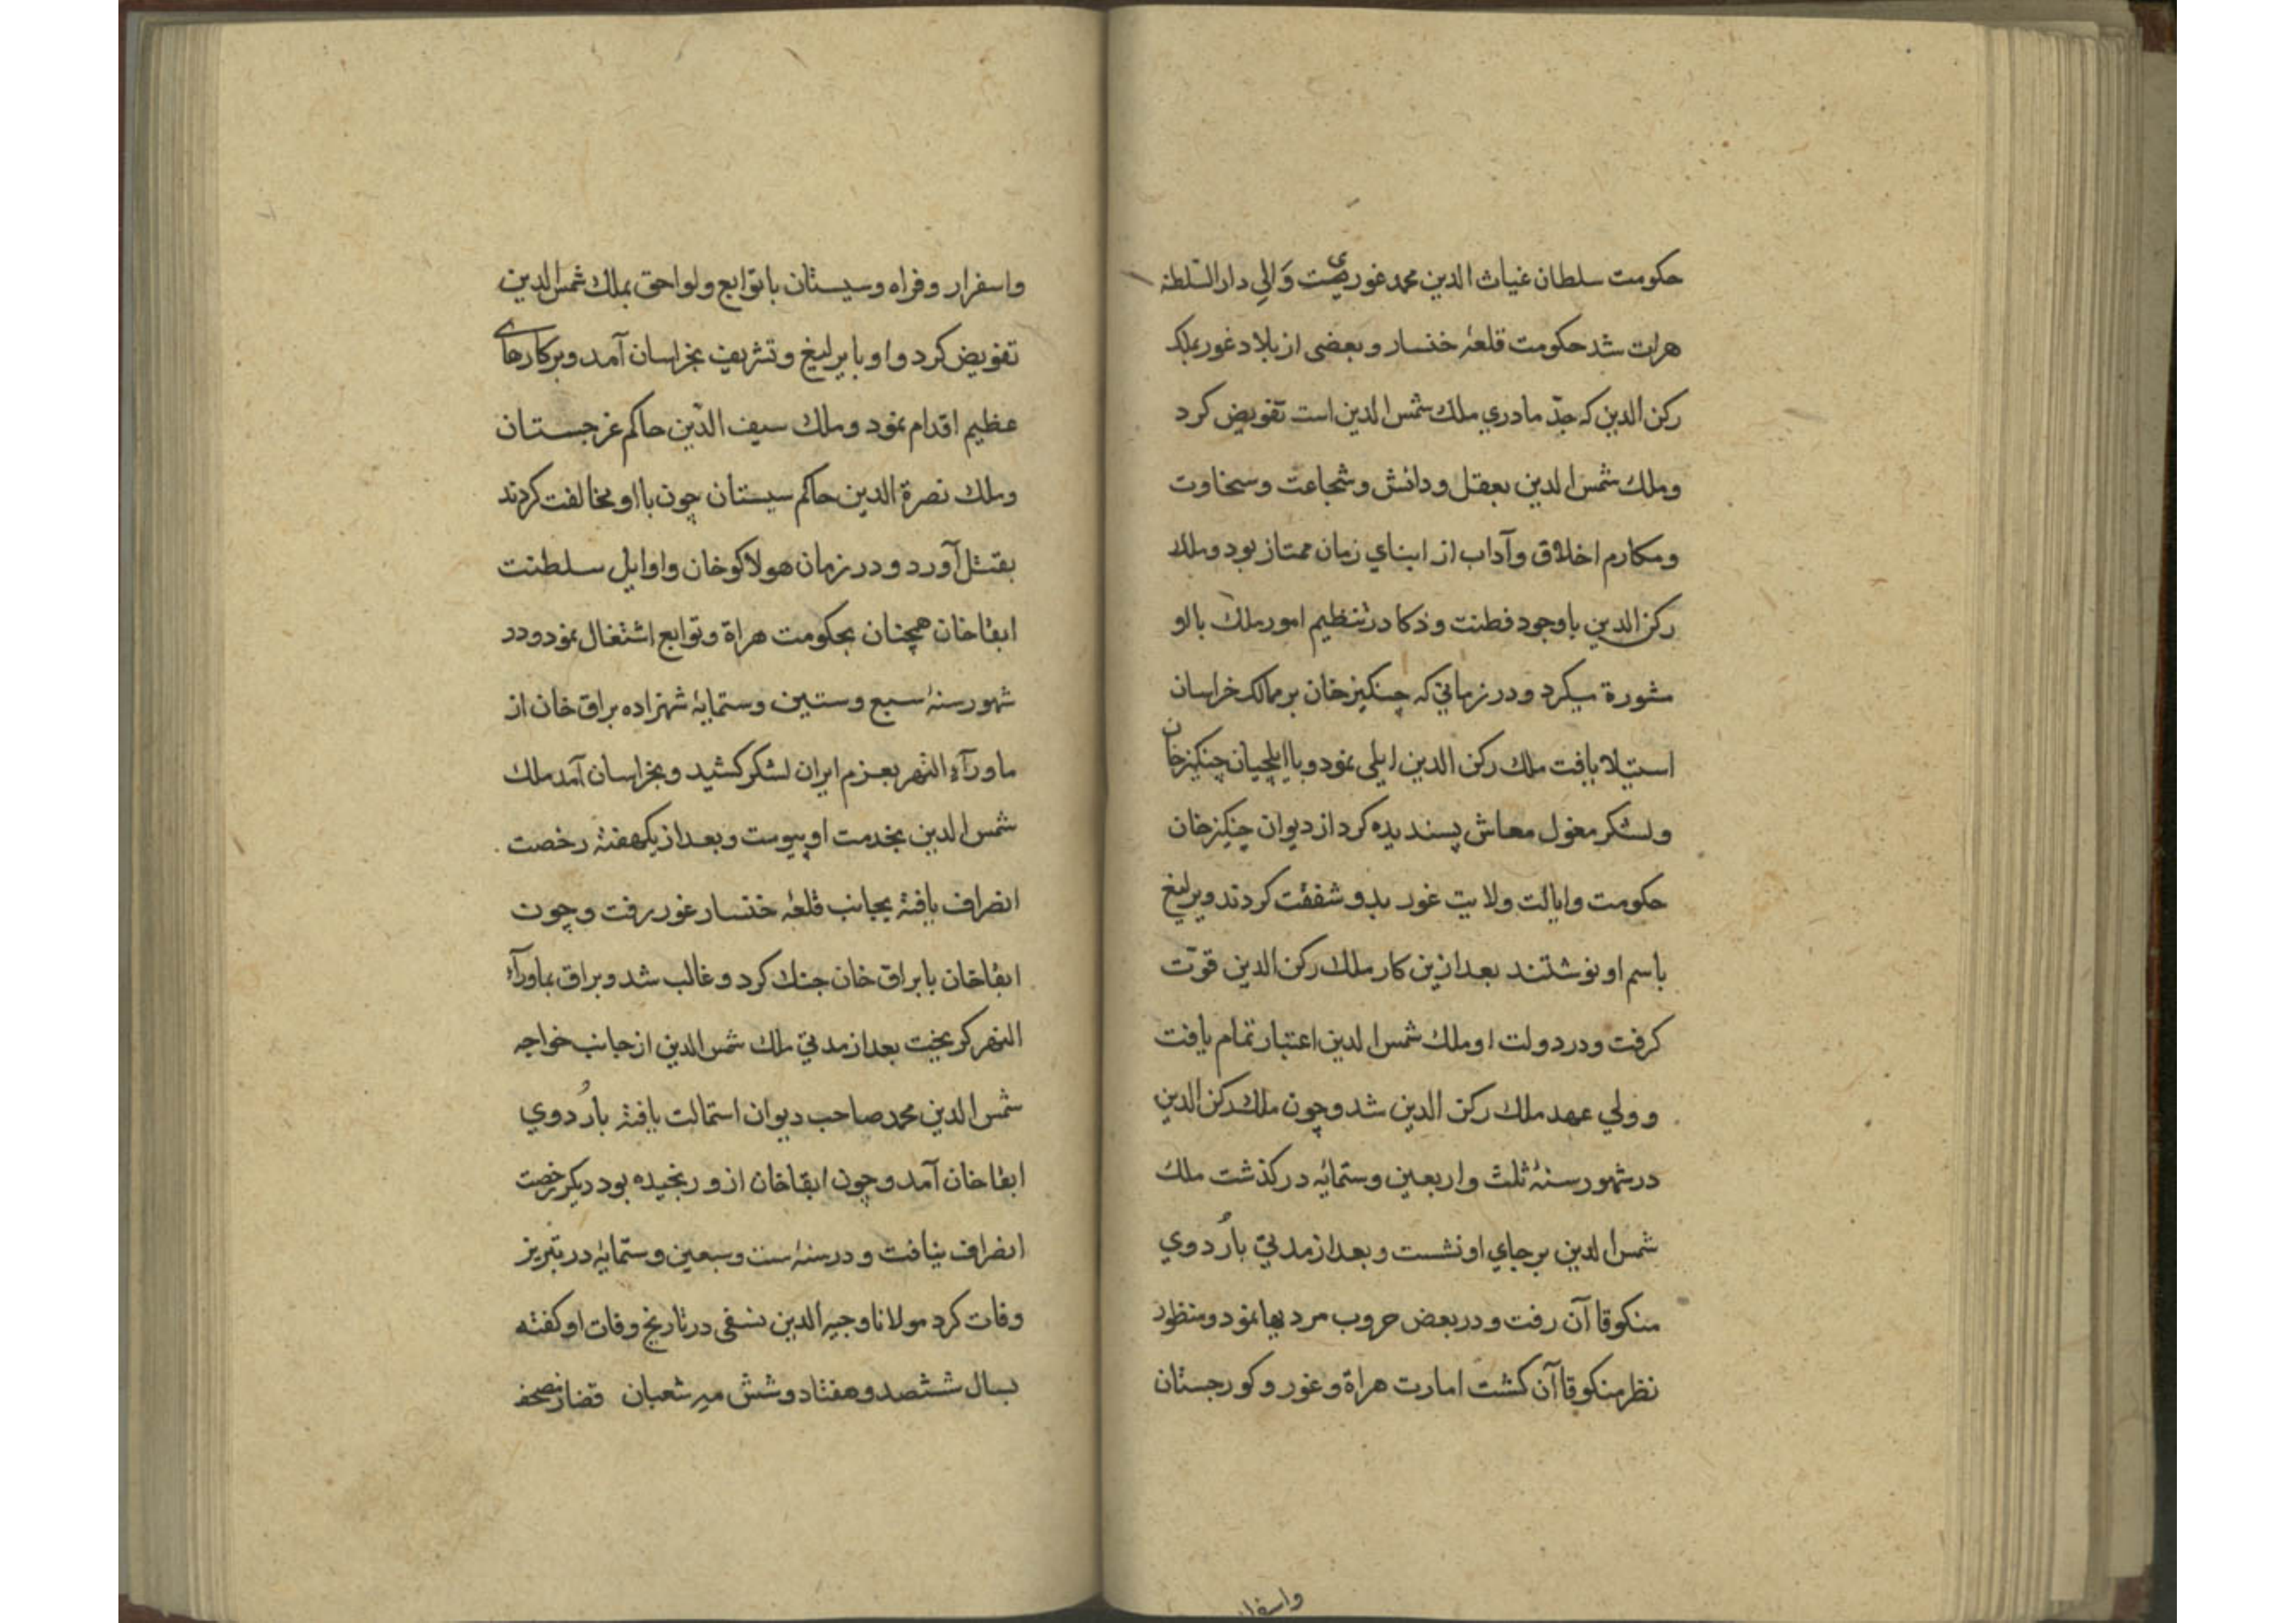 حكومت سلطان غياث الدين محمد غوري والي دار السلطنه
هرات شد حكومت قلعهٔ خنسار و بعضى از بلاد غور بملك
ركن الدين كه جدّ مادري ملك شمس الدين است تفويض كرد
وملك شمس الدين بعقل ودانش وشجاعت وسخاوت
ومكارم اخلاق وآداب از ابناي زمان ممتاز بود وملك
ركن الدين باوجود فطنت وذكا در تنظيم امور ملك با او
مشورة ميكرد ودر زماني كه چنكيز خان بر ممالك خراسان
استيلا يافت ملك ركن الدين ايلى نمود وبا ايلچيان چنكيز خان
ولشكر مغول معاش پسنديده كرد از ديوان چنكيز خان
حكومت وايالت ولايت غور بدو شفقت كردند ويرليغ
باسم او نوشتند بعد ازين كار ملك ركن الدين قوّت
كرفت ودر دولت او ملك شمس الدين اعتبار تمام يافت
وولي عهد ملك ركن الدين شد وچون ملك ركن الدين
در شهور سنهٔ ثلث واربعين وستمايه در كذشت ملك
شمس الدين بر جاي او نشست وبعد از مدتي باُردوي
منكوقاآن رفت ودر بعض حروب مرديها نمود ومنظور
نظر منكوقاآن كشت امارت هراة وغور وكورجستان
واسفرا
واسفرار وفراه وسيستان با توابع ولواحق بملك شمس الدين
تفويض كرد واو با يرليغ وتشريف بخراسان آمد وبر كارهاى
عظيم اقدام نمود وملك سيف الدّين حاكم غرجستان
وملك نصرة الدين حاكم سيستان چون با او مخالفت كردند
بقتل آورد ودر زمان هولاكو خان واوايل سلطنت
ابقاخان همچنان بحكومت هراة وتوابع اشتغال نمود ودر
شهور سنهٔ سبع وستين وستمايهٔ شهزاده براق خان از
ماورآء النهر بعزم ايران لشكر كشيد وبخراسان آمد ملك
شمس الدين بخدمت او پيوست وبعد از يكهفتهٔ رخصت
انصراف يافتهٔ بجانب قلعهٔ خنسار غور رفت وچون
ابقاخان با براق خان جنك كرد وغالب شد وبراق بماورآء
النهر كريخت بعد از مدتي ملك شمس الدين از جانب خواجه
شمس الدين محمد صاحب ديوان استمالت يافتهٔ باُردوي
ابقاخان آمد وچون ابقاخان ازو رنجيده بود ديكر رخصت
انصراف نيافت ودر سنهٔ ست وسبعين وستمايهٔ در تبريز
وفات كرد مولانا وجيه الدين نسفى در تاريخ وفات او كفته
بسال ششصد وهفتاد وشش مه شعبان قضا ز مصحف